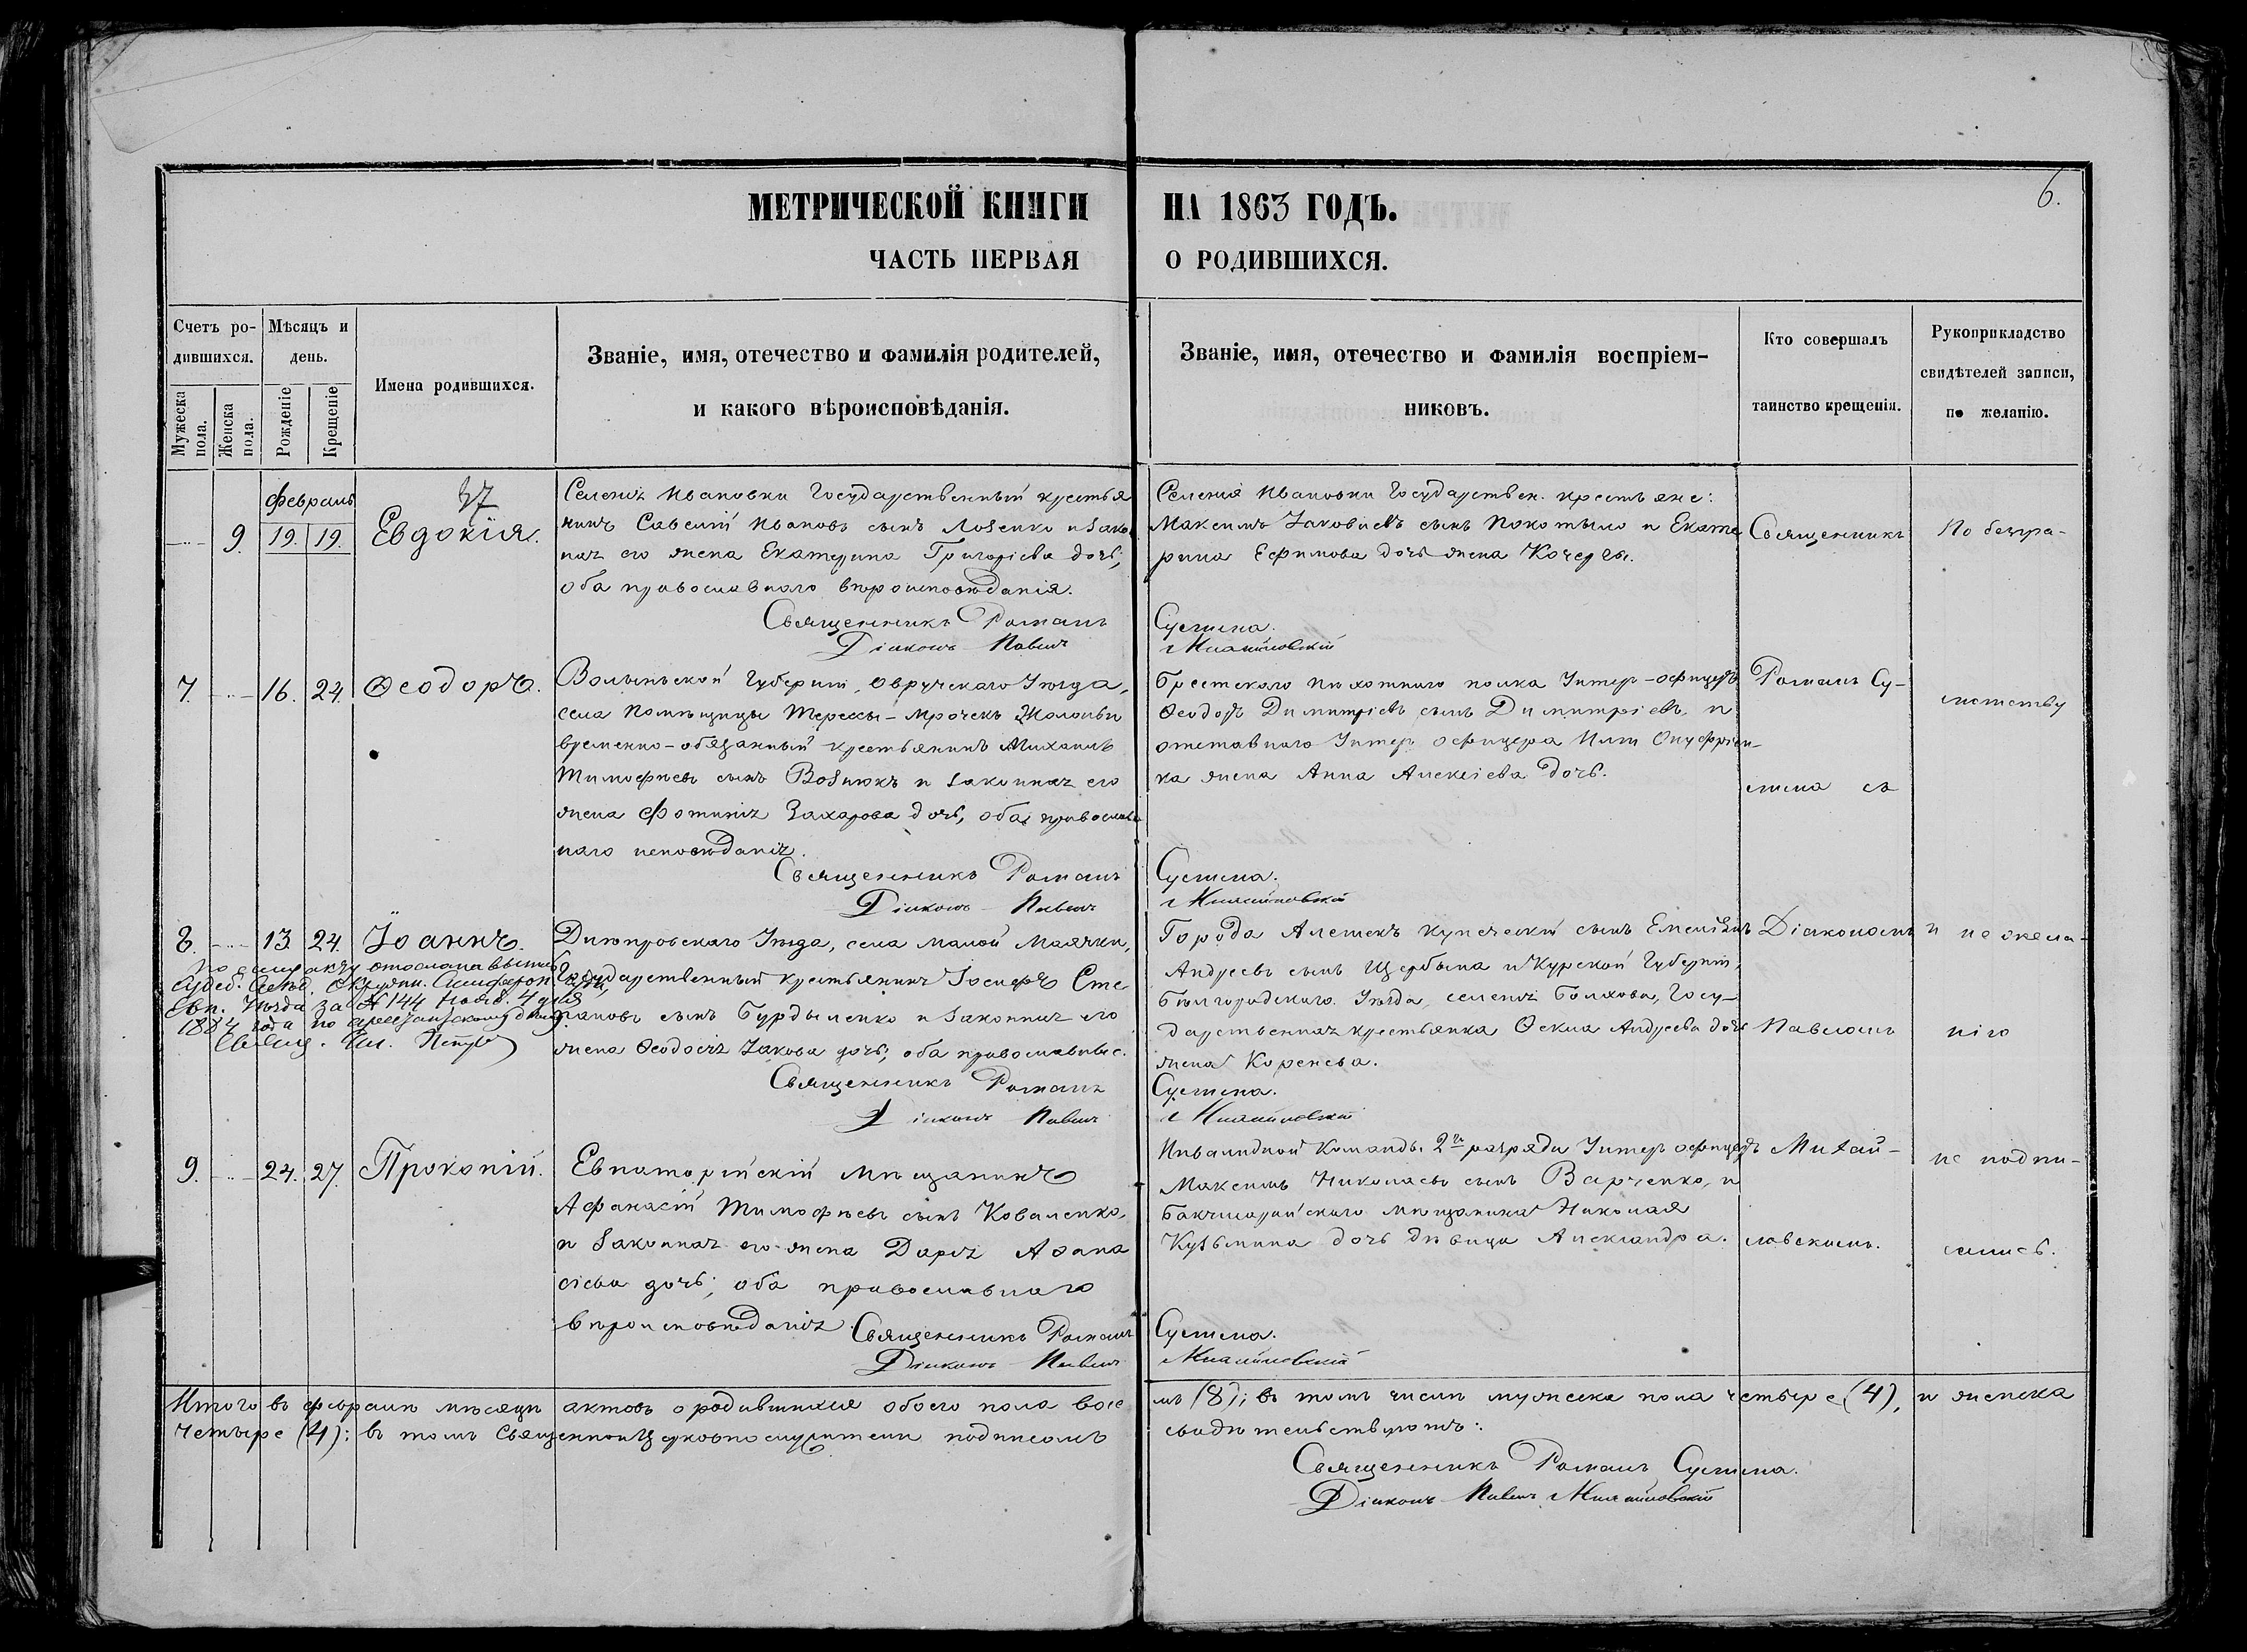 6.
МЕТРИЧЕСКОЙ КНИГИ НА 1863 ГОДЪ.
ЧАСТЬ ПЕРВАЯ О РОДИВШИХСЯ.
Счетъ ро-
дившихся.
Мужеска
пола.
Женска
пола.
Мѣсяцъ и
день.
Рожденіе
Крещеніе
Имена родившихся.
Званіе, имя, отечество и фамилія родителей,
и какого вѣроисповѣданія.
Званіе, имя, отечество и фамилія воспріем-
никовъ.
Кто совершалъ
таинство крещенія.
Рукоприкладство
свидѣтелей записи,
по желанію.
Февраль
9. 19. 19. Евдокія.
Селенія Ивановки Государственный крестья
нинъ Савелій Ивановъ сынъ Лозенко и закон
ная его жена Екатерина Григоріева дочь;
оба православнаго вѣроисповѣданія.
Священникъ Романъ Сустина.
Діаконъ Павелъ Михайловскій
Селенія Ивановки Государствен. крестьяне:
Максимъ Іаковлевъ сынъ Покотыло и Екате
рина Ефимова дочь жена Кочерги.
7. 16. 24. Ѳеодоръ.
Волынской Губерніи, Овручскаго Уѣзда,
села Помѣщицы Терессы-Мрочекъ
временно-обязанный крестьянинъ Михаилъ
Тимофѣевъ сынъ Вознюкъ и законная его
жена Фотинія Захарова дочь, оба православ
наго исповѣданія.
Священникъ Романъ Сустина.
Діаконъ Павелъ Михайловскій
Брестскаго пѣхотнаго полка Унтеръ-офицеръ
Ѳеодоръ Димитріевъ сынъ Димитріевъ, и
отставнаго Унтеръ офицера Ильи Онуфріен-
ка жена Анна Алексіева дочь.
8. 13. 24. Іоаннъ.
Днѣпровскаго Уѣзда, села Малой Маячки,
Государственный крестьянинъ Іосифъ Сте
пановъ сынъ Бурдыленко и законная его
жена Ѳеодосія Іакова дочь; оба православные.
Священникъ Романъ Сустина.
Діаконъ Павелъ Михайловскій
Города Алешекъ купеческій сынъ Емеліанъ
Андреевъ сынъ Щербына и Курской Губерніи,
Бѣлгородскаго Уѣзда, селенія Болхова, Госу-
дарственная крестьянка Ѳекла Андреева дочь
жена Коренева.
по сему акту отослана выпись
за № 144 Нояб. 4 дня
1884 года по
9. 24. 27. Прокопій.
Евпаторійскій мѣщанинъ
Афанасій Тимофѣевъ сынъ Коваленко,
и законная его жена Дарія Аѳана
сіева дочь; оба православнаго
вѣроисповѣданія.
Священникъ Романъ Сустина.
Діаконъ Павелъ Михайловскій
Инвалидной Команды 2го разряда Унтеръ офицеръ
Максимъ Николаевъ сынъ Варченко, и
Бакчисарайскаго мѣщанина Николая
Кузьмина дочь дѣвица Александра.
Священникъ
Романъ Су-
стина съ
Діакономъ
Павломъ
Михай-
ловскимъ.
По безгра-
мотству
и не жела-
нію
не подпи-
сались.
Итого въ февралѣ мѣсяцѣ актовъ о родившихся обоего пола восе мъ (8); въ томъ числѣ мужеска пола четыре (4), и женска
четыре (4): въ томъ Священноцерковнослужители подписомъ свидѣтельствуютъ:
Священникъ Романъ Сустина.
Діаконъ Павелъ Михайловскій